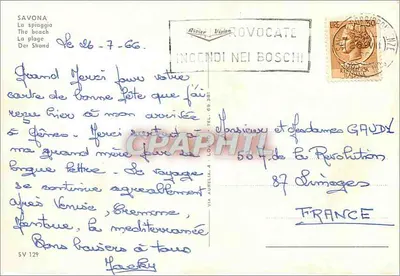 SAVONA
La spiaggia
The beach
La plage
Der Strand
le 26-7-66.
Grand Merci pour votre
carte de bonne fête que j'ai
reçu hier à mon arrivée
à Gênes. Merci surtout à
ma grand mère pour sa
longue lettre. Le voyage
se continue agréablement
après Venise, Cremone,
Mantoue, la mediterranée
Bons baisers à tous
Jacky
SV 129
PROVOCATE
INCENDI NEI BOSCHI
LIRE 30
CPARHTL
Monsieur et Mesdames GAUDY
50 de la Revolution
87 Limoges
FRANCE